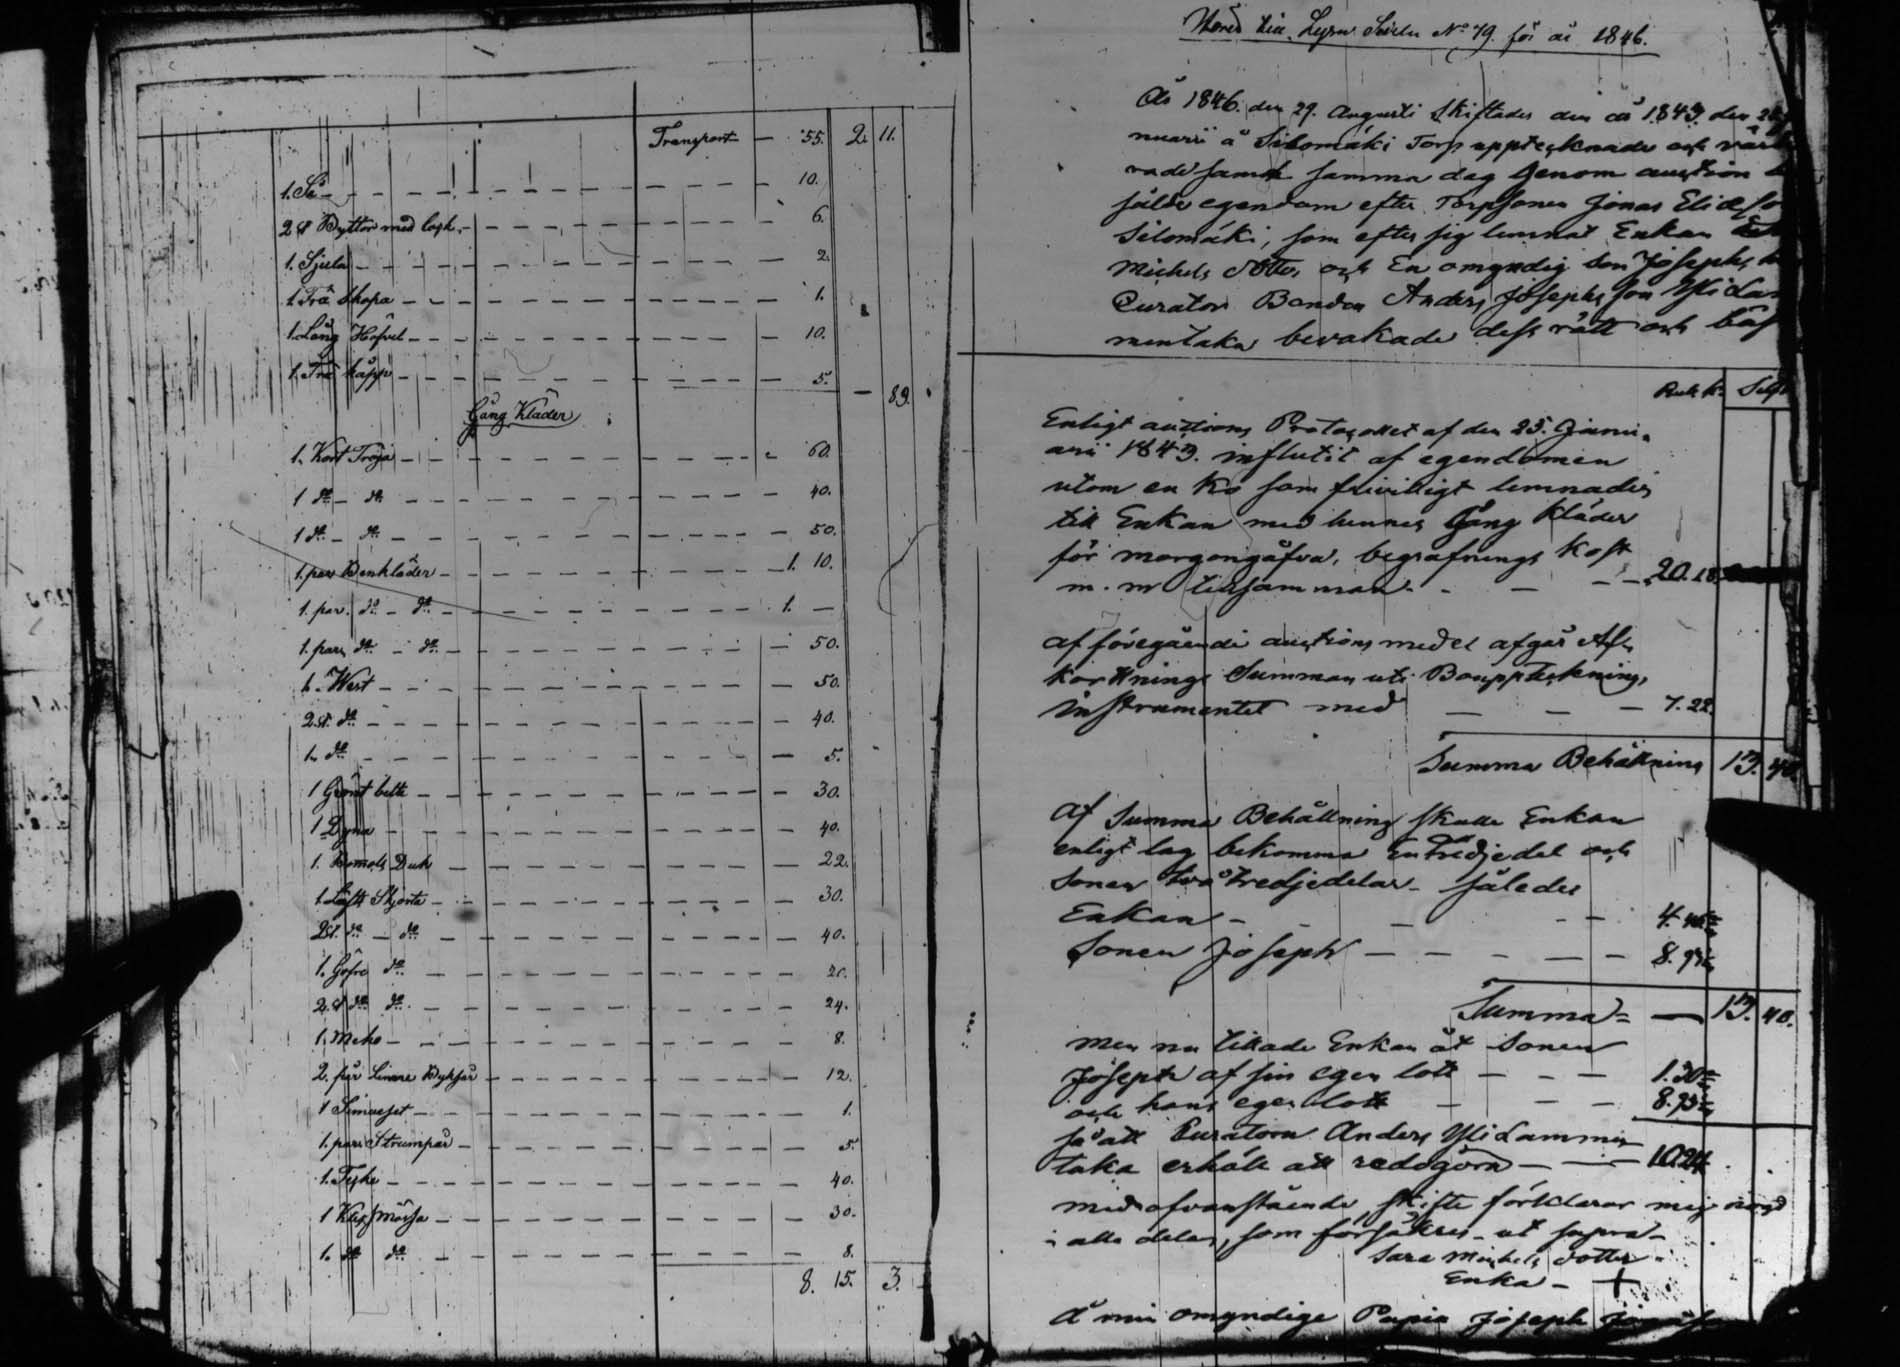 Transport — 55. 2. 11.
1. Så — 10.
2 st Byttor med lock — 6.
1. — 2.
1 Trä Skopa — 1.
1. Lång Höfvel — 10.
1. Trä käpp — 5. — 89.
Gång Kläder
1. Kort Tröja — 60.
1 do — do — 40.
1 do — do — 50.
1. par Benkläder — 1. 10.
1. par. do — do — 1. —
1. par do — do — 50.
1. West — 50.
2 st. do — 40.
1. do — 5.
1 Grönt bälte — 30.
1 Dyna — 40.
1. Bomols Duk — 22.
1. Skjorta — 30.
2 st. do — do — 40.
1. do — 20.
2 st do do — 24.
1. — 8.
2. par Byxor — 12.
1 — 1.
1. par Strumpor — 5.
1. — 40.
1 mössa — 30.
1. do do — 8.
8. 15. 3
No 79. för år 1846.
År 1846. den 29. Augusti Skiftades den år 1843. den
nuarii å Silomäki Torp upptecknade och vär
rade samt samma dag Genom auction
sålde egendom efter Torpsonen Jonas
Silomäki, som efter sig lemnat Enkan
Michels dotter och En omyndig son Joseph,
Curator Bonden Anders Josephs son Yli
taka bevakade dess rätt och
Enligt auctions Protocollet af den 25. Janu-
arii 1843. influtit af egendomen
utom en ko som frivilligt lemnades
till Enkan med hennes Gång Kläder
för morgongåfva, begrafnings kost
m. m tillsamman — 20. 18
af föregående auctions medel afgår Af-
kortnings Summan uti Bouppteknings
instrumentet med — 7. 22.
Summa Behållning 13. 40.
Af Summa Behållning skulle Enkan
enligt lag bekomma En Tredjedel och
Sonen två tredjedelar således
Enkan — 4.
Sonen Joseph — 8.
Summa — 13. 40.
men nu Enkan åt Sonen
Joseph af sin egen lott — 1.
och hans egen lott — 8.
så att Curatorn Anders Yli Lammin
taka erhåll att redogöra — 10.24
med ofvanstående skifte förklarar mig nögd
i alla delar, som försäkras ut supra
Sara Michels dotter
Enka +
Å min omyndige Joseph